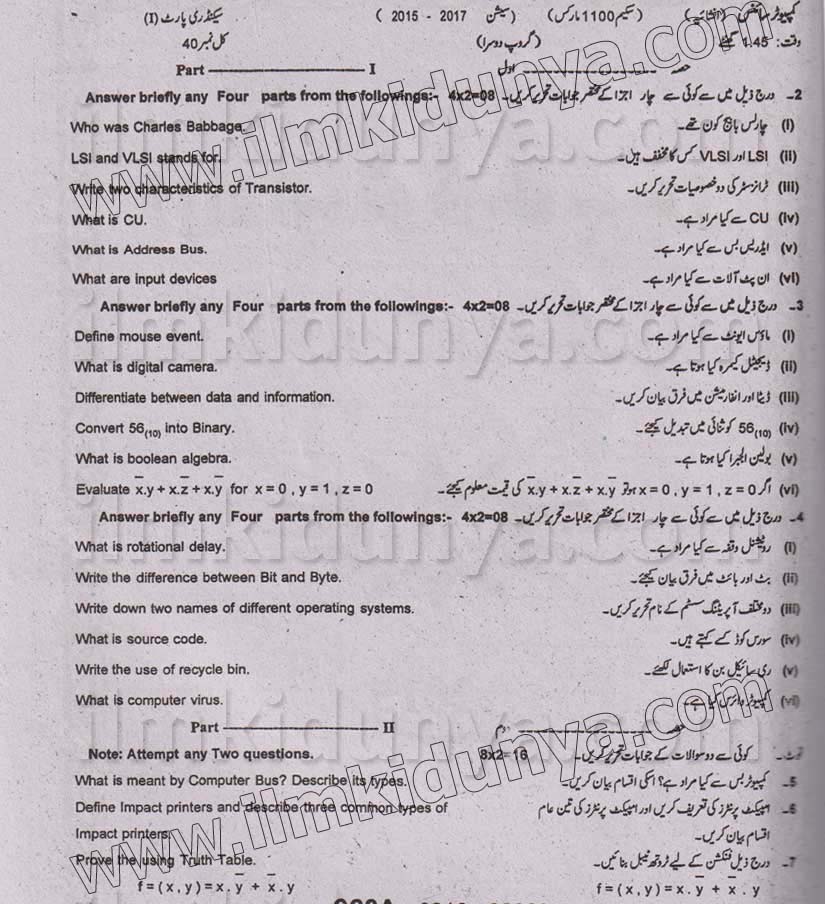 کمپیوٹر سائنس (انشائیہ) (سکیم 1100 مارکس) (سیشن 2017 - 2015) سیکنڈری پارٹ (I)
وقت: 1.45 گھنٹے (گروپ دوسرا) کل نمبر 40
Part I حصہ اول
Answer briefly any Four parts from the followings:- 4x2=08 2۔ درج ذیل میں سے کوئی سے چار اجزا کے مختصر جوابات تحریر کریں۔
Who was Charles Babbage. (i) چارلس بابیج کون تھے۔
LSI and VLSI stands for. (ii) LSI اور VLSI کس کا مخفف ہیں۔
Write two characteristics of Transistor. (iii) ٹرانزسٹر کی دو خصوصیات تحریر کریں۔
What is CU. (iv) CU سے کیا مراد ہے۔
What is Address Bus. (v) ایڈریس بس سے کیا مراد ہے۔
What are input devices (vi) ان پٹ آلات سے کیا مراد ہے۔
Answer briefly any Four parts from the followings:- 4x2=08 3۔ درج ذیل میں سے کوئی سے چار اجزا کے مختصر جوابات تحریر کریں۔
Define mouse event. (i) ماؤس ایونٹ سے کیا مراد ہے۔
What is digital camera. (ii) ڈیجیٹل کیمرہ کیا ہوتا ہے۔
Differentiate between data and information. (iii) ڈیٹا اور انفارمیشن میں فرق بیان کریں۔
Convert 56(10) into Binary. (iv) 56(10) کو ثنائی میں تبدیل کیجئے۔
What is boolean algebra. (v) بولین الجبرا کیا ہوتا ہے۔
Evaluate x̅.y + x.z̅ + x.y̅ for x = 0 , y = 1 , z = 0 (vi) اگر x = 0 , y = 1 , z = 0 ہو تو x̅.y + x.z̅ + x.y̅ کی قیمت معلوم کیجئے۔
Answer briefly any Four parts from the followings:- 4x2=08 4۔ درج ذیل میں سے کوئی سے چار اجزا کے مختصر جوابات تحریر کریں۔
What is rotational delay. (i) روٹیشنل وقفہ سے کیا مراد ہے۔
Write the difference between Bit and Byte. (ii) بٹ اور بائٹ میں فرق بیان کیجئے۔
Write down two names of different operating systems. (iii) دو مختلف آپریٹنگ سسٹم کے نام تحریر کریں۔
What is source code. (iv) سورس کوڈ کسے کہتے ہیں۔
Write the use of recycle bin. (v) ری سائیکل بن کا استعمال لکھئے۔
What is computer virus. (vi) کمپیوٹر وائرس کیا ہے۔
Part II حصہ دوم
Note: Attempt any Two questions. 8x2=16 نوٹ۔ کوئی سے دو سوالات کے جوابات تحریر کریں۔
What is meant by Computer Bus? Describe its types. 5۔ کمپیوٹر بس سے کیا مراد ہے؟ اسکی اقسام بیان کریں۔
Define Impact printers and describe three common types of 6۔ امپیکٹ پرنٹرز کی تعریف کریں اور امپیکٹ پرنٹرز کی تین عام
Impact printers. اقسام بیان کریں۔
Prove the using Truth Table. 7۔ درج ذیل فنکشن کے لیے ٹروتھ ٹیبل بنائیں۔
f = ( x , y ) = x . y̅ + x̅ . y f = ( x , y ) = x. y̅ + x̅ . y
www.ilmkidunya.com
ilmkidunya.com
ilmkidunya.com
ilmkidunya.com
www.ilmkidunya.com
ilmkidunya.com